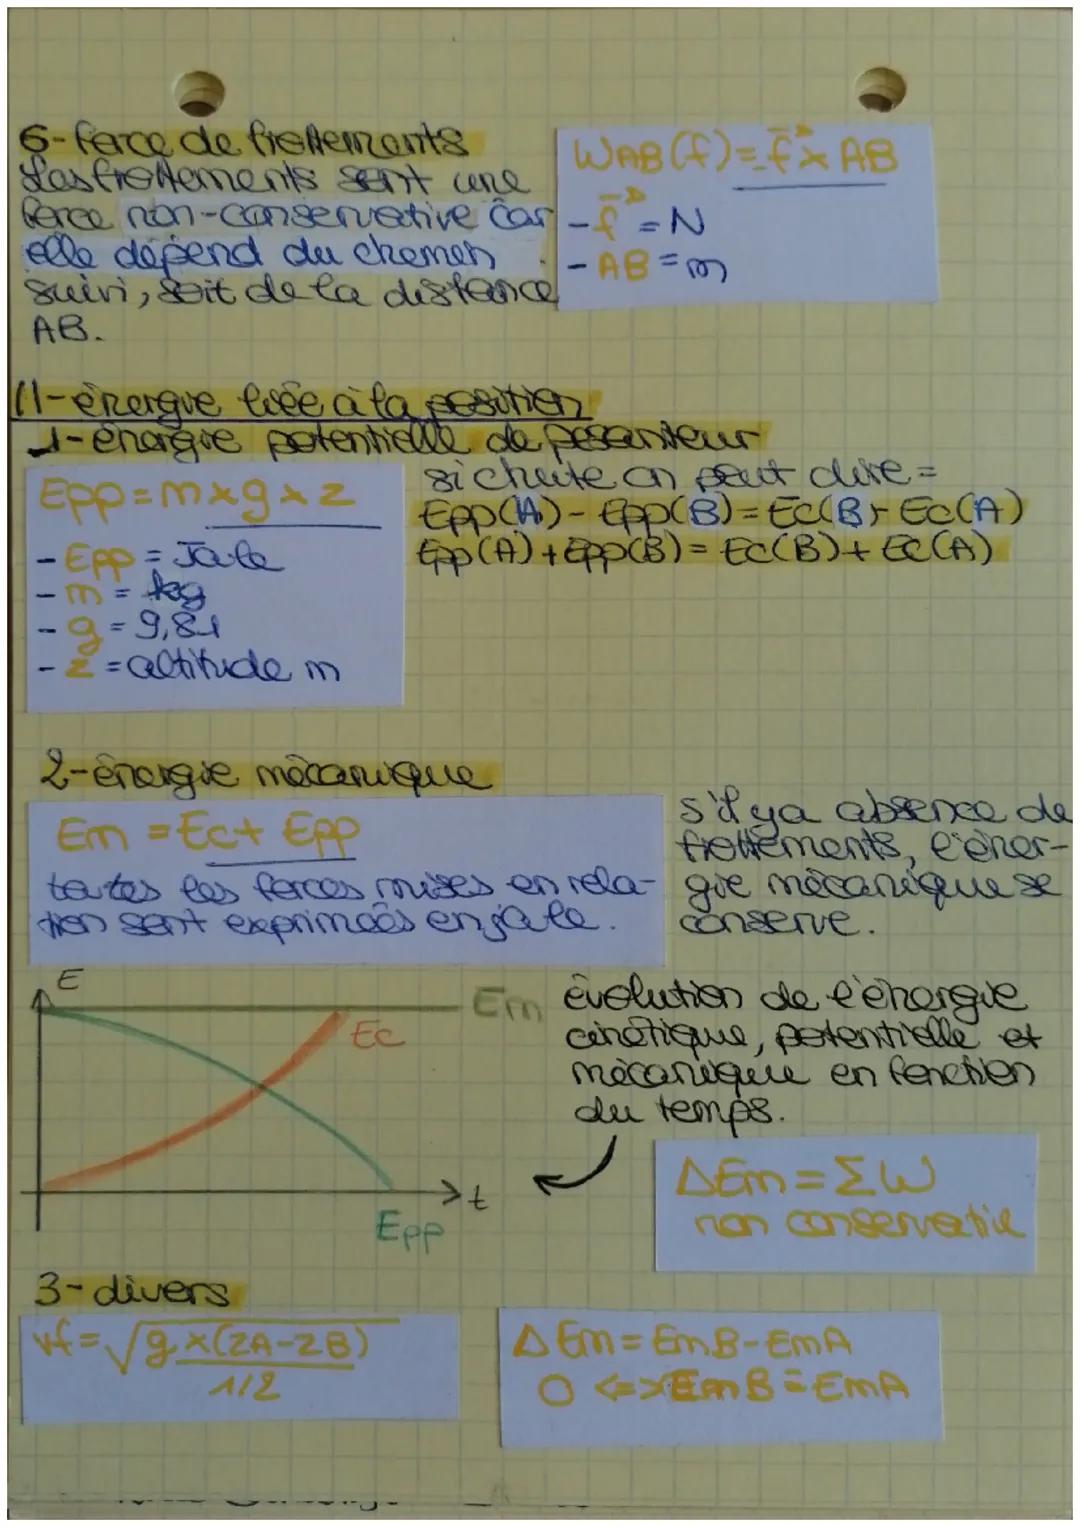 6-force de frottements
Les frottements sont une
force non-conservative car
elle dépend du chemin
suivi, soit de la distance
AB.
WAB(f)=-f x AB
- f = N
- AB = m
II-énergie liée à la position
1-énergie potentielle de pesanteur
Epp=mxgxz
- Epp = Joule
- m = kg
- g = 9,81
- z = altitude m
si chute on peut dire =
Epp(A)- Epp(B)=Ec(B)- Ec(A)
Epp(A)+Epp(B)= Ec(B)+ Ec(A)
2-énergie mécanique
Em =Ec+ Epp
toutes les forces mises en rela-
tion sont exprimées en joule.
s'il y a absence de
frottements, l'éner-
gie mécanique se
conserve.
E
Em
Ec
t
Epp
évolution de l'énergie
cinétique, potentielle et
mécanique en fonction
du temps.
ΔEm=ΣW
non conservative
3-divers
vf=√g x(zA-zB)
1/2
ΔEm=EmB-EmA
0 <=>EmB=EmA